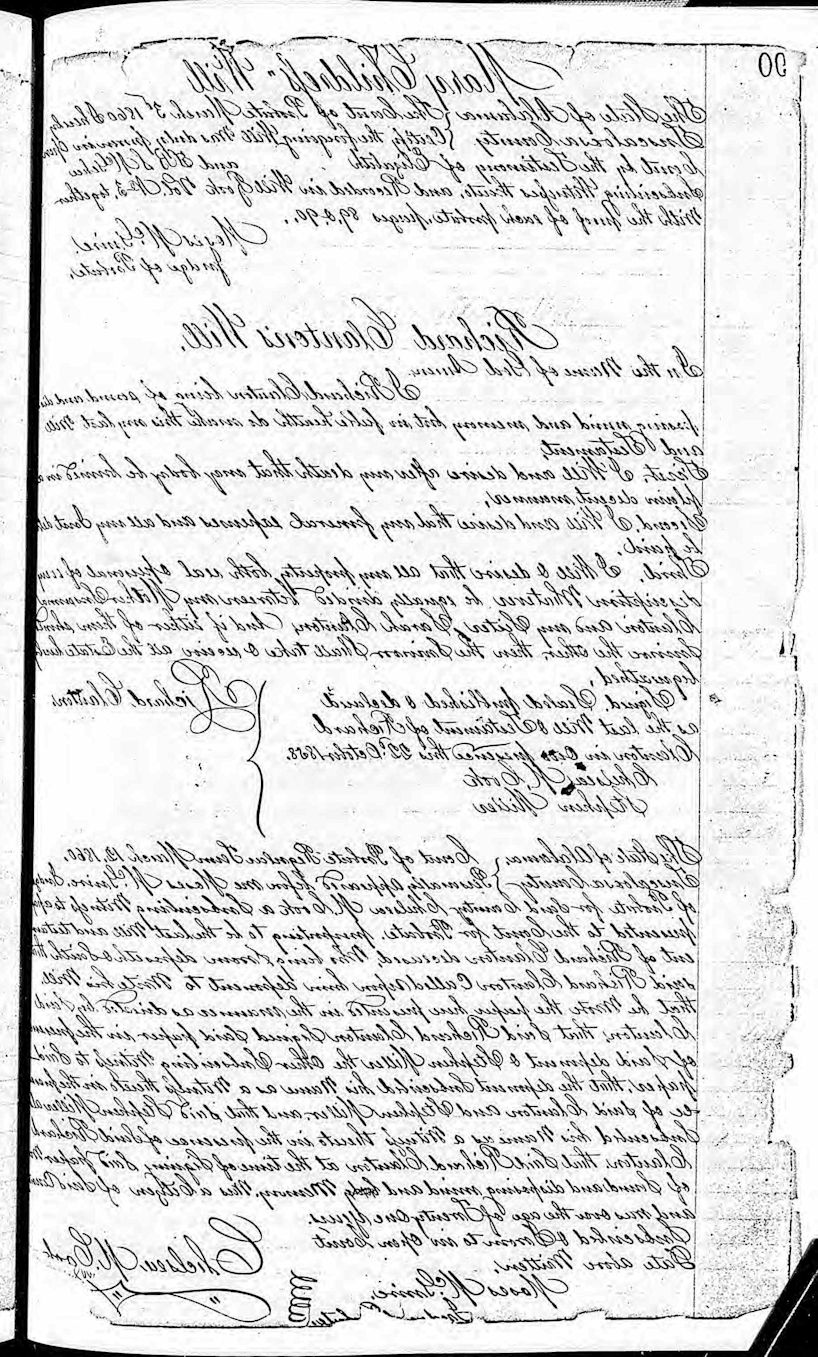 90
Mary Childress' Will
The State of Alabama } The Court of Probate March 5th 1860 I hereby
Tuscaloosa County } Certify the foregoing Will was duly proven in Open
Court by the Testimony of Elizabeth and
Subscribing Witnesses thereto, and Recorded in Will Book Vol. No. 3 together
With the Proof of each probate, pages 89, & 90,
Moses McGuire
Judge of Probate,
Richard Clanton's Will,
In the Name of God Amen,
I Richard Clanton being of sound and
posing mind and memory but in feble health do make this my last Will
and Testament,
First, I Will and desire after my death that my body be burried in a
plain decent manner,
Second I Will and desire that my funeral expenses and all my Just
be paid.
Third, I Will & desire that all my property both real & personal of
discription Whatever be equally devided between my Mother
Clanton and my Sister Sarah Clanton, And if either of them should
Survive the other then the Survivor Shall take & receive all the Estate hereby
bequeathed,
Signed Sealed published & declared
as the last Will & Testament of Richard
Clanton in our presence this 22d October 1858.
Richard Clanton
Chelsea M. Cook
Stephen Miller
The State of Alabama, } Court of Probate Regular Term March 12, 1860.
Tuscaloosa County } Personally appeared before me Moses McGuire Judge
of Probate for Said County Chelsea M. Cook a Subscribing Witness to
presented to the Court for Probate, purporting to be the last Will and testam
ent of Richard Clanton deceased, Who being Sworn deposeth & Saith that
said Richard Clanton Called upon him deponent to Write his Will
that he Wrote the paper here presented in the manner as directed by Said
Clanton; that Said Richard Clanton Signed Said paper in the presen
of said deponent & Stephen Miller the Other Subscribing Witness to Said
paper, that the deponent Subscribed his Name as a Witness thereto in the presen
ce of Said Clanton and Stephen Miller, and that Said Stephen Miller
Subscribed his Name as a Witness thereto in the presence of Said Richard
Clanton that Said Richard Clanton at the time of Signing Said paper Was
of Sound and disposing mind and Memory, Was a Citizen of Said County
and was over the age of Twenty One Years
Subscribed & Sworn to in Open Court
Date above Written,
Chelsea M. Cook
Moses McGuire,
Judge